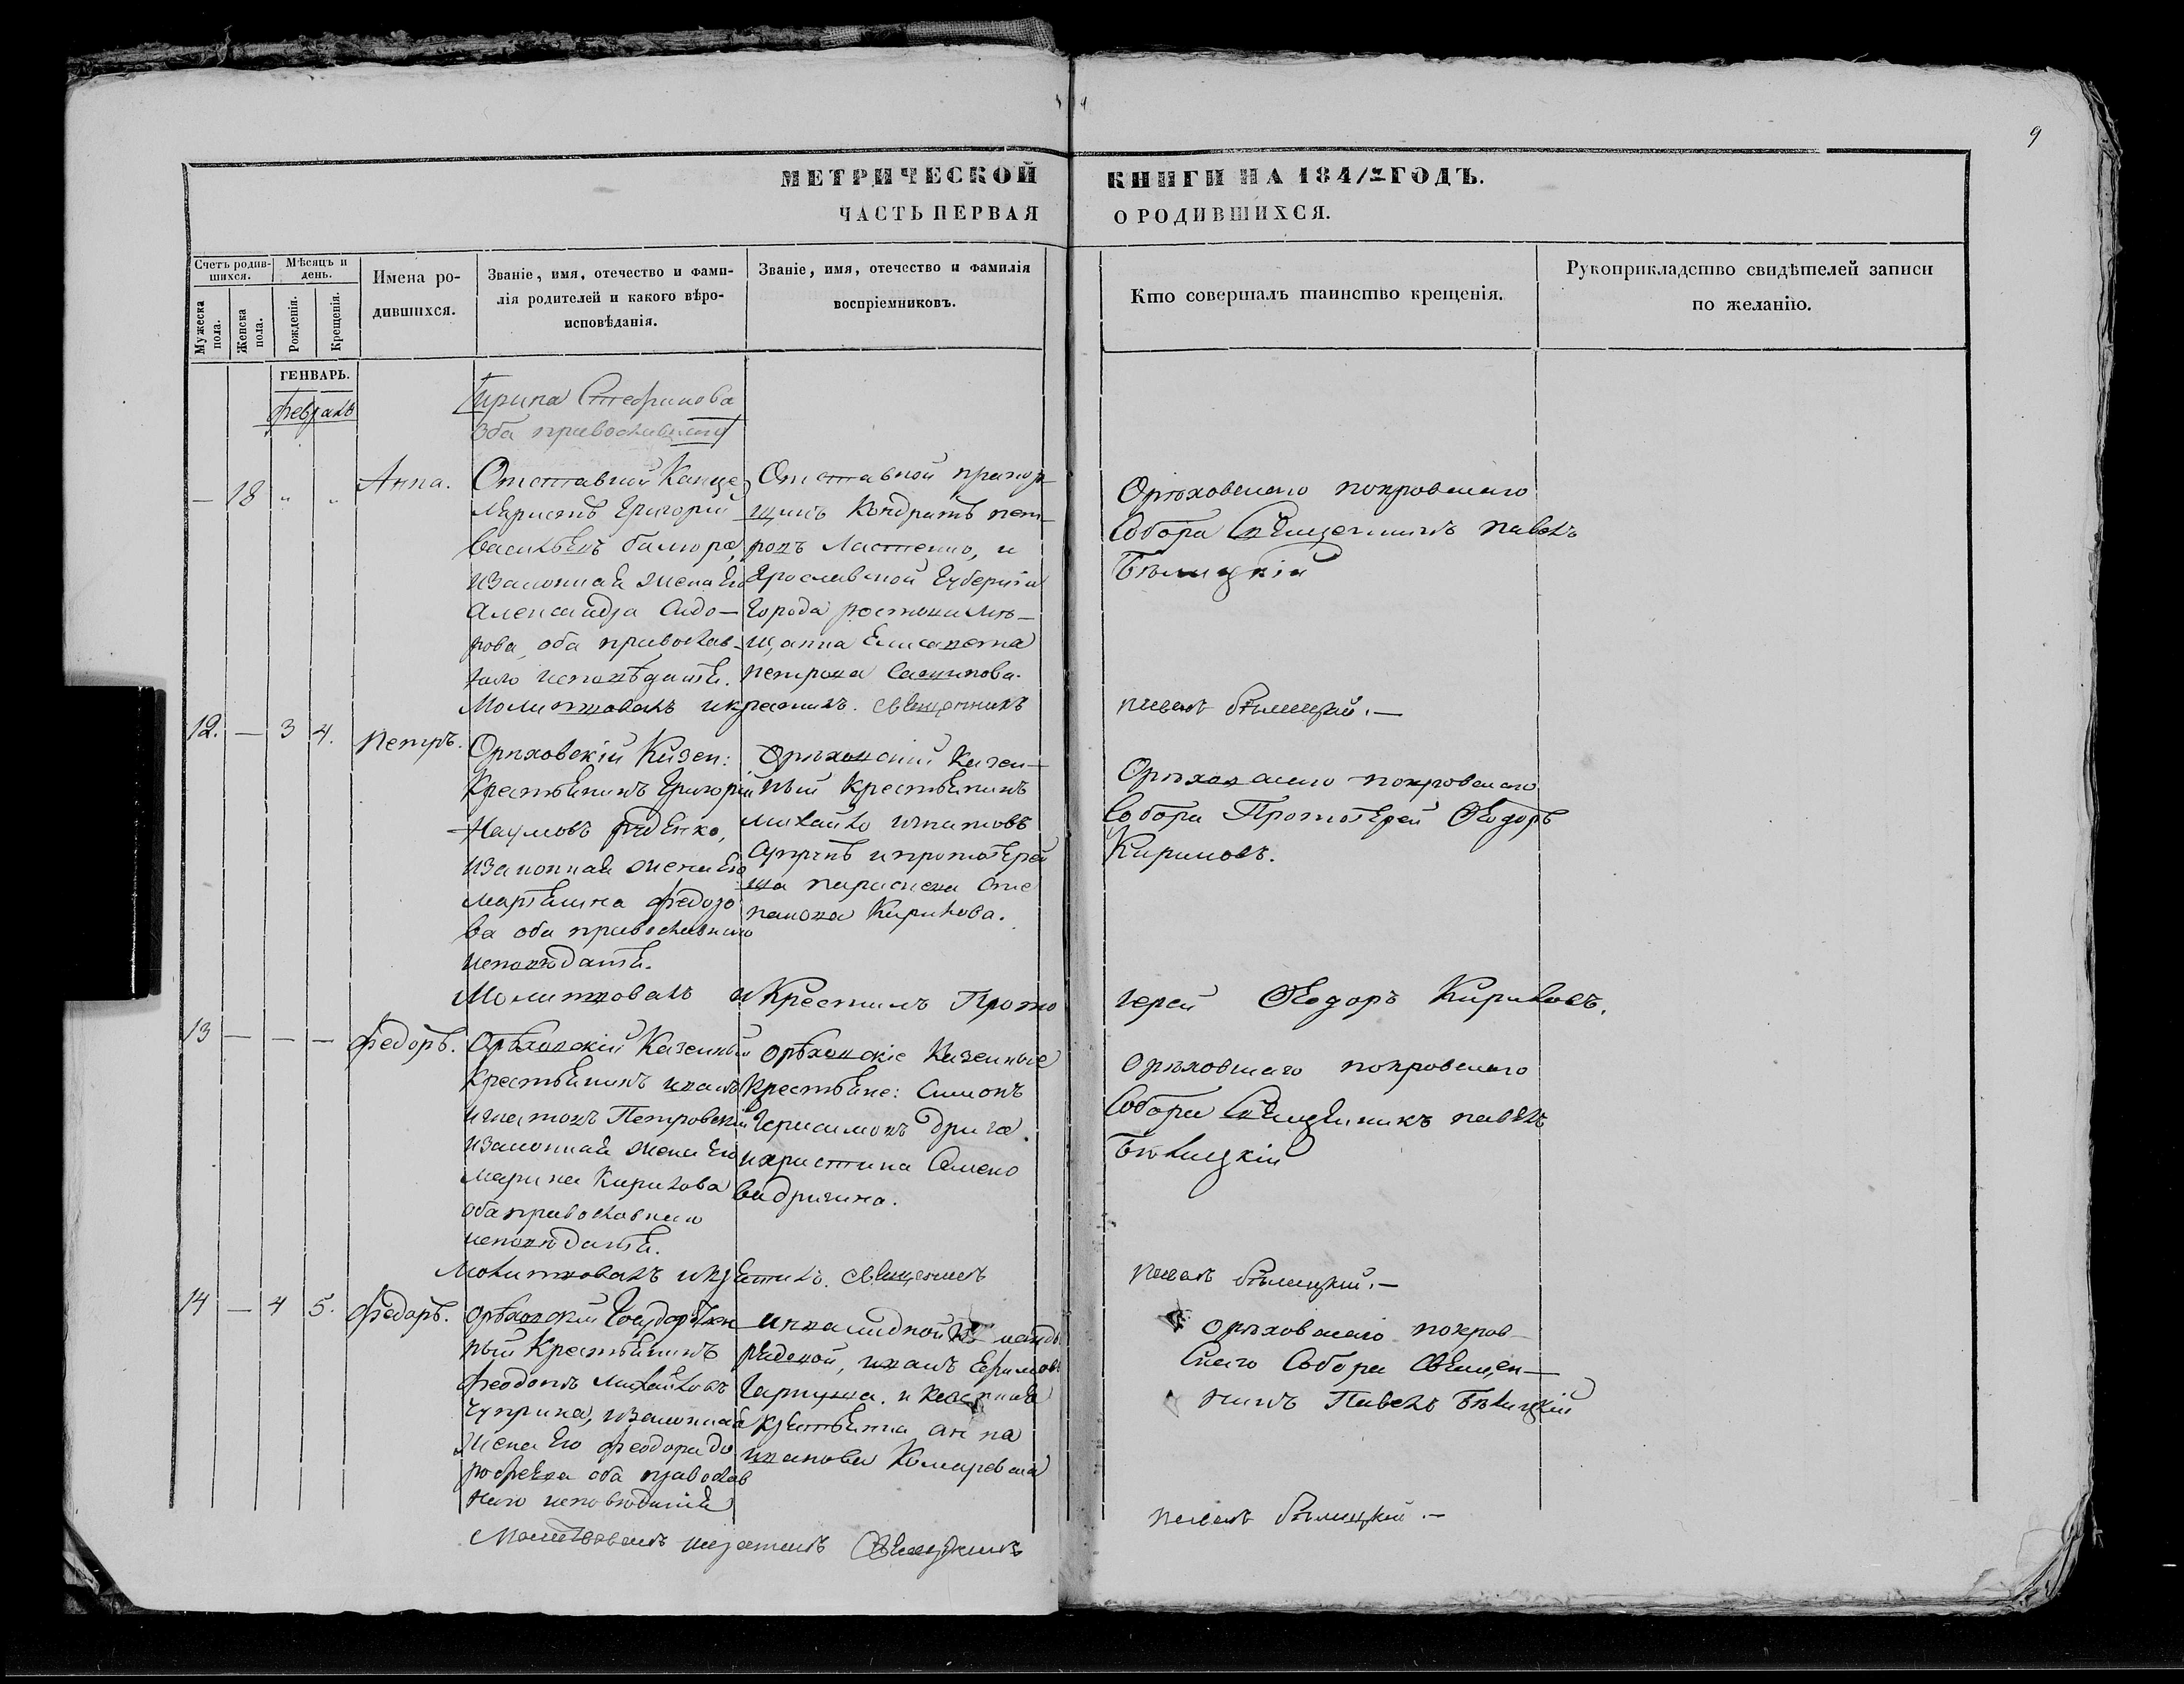 9
МЕТРИЧЕСКОЙ КНИГИ НА 184/7 ГОДЪ.
ЧАСТЬ ПЕРВАЯ О РОДИВШИХСЯ.
Счетъ родив-
шихся.
Мужеска
пола.
Женска
пола.
Мѣсяцъ и
день.
Рожденія.
Крещенія.
Имена ро-
дившихся.
Званіе, имя, отечество и фами-
лія родителей и какого вѣро-
исповѣданія.
Званіе, имя, отечество и фамилія
воспріемниковъ.
Кто совершалъ таинство крещенія.
Рукоприкладство свидѣтелей записи
по желанію.
ГЕНВАРЬ.
февраль
Ирина Стефанова
Оба православныя
— 18 " " Анна.
Отставной Канце
ляристъ Григорій
Васильевъ
изаконная жена Его
Александра Сидо—
рова, оба православ-
наго исповѣданія.
Отставной прапор-
щикъ Кондратъ пет—
ровъ Ластенко, и
Ярославской Губерніи
Города Ростова
щанка Елисавета
петрова
Орѣховскаго покровскаго
Собора Священникъ павелъ
Бѣлицкій
Молитвовалъ икрестилъ. священникъ павелъ бѣлицкій.—
12. — 3 4. петръ.
Орѣховскій Казен:
Крестьянинъ Григорій
Наумовъ
изаконная жена Его
Федоро
ва оба православнаго
исповѣданія.
Орѣховскій Казен—
ный Крестьянинъ
Михайло Игнатовъ
ипротоіерей
ша параскева Сте
панова Кирилова.
Орѣховскаго покровскаго
Собора Протоіерей Ѳеодоръ
Кириловъ.
Молитвовалъ и Крестилъ Прото іерей Ѳеодоръ Кириловъ.
13 — — — Федоръ.
Орѣховскій Казенный
Крестьянинъ иванъ
Игнатовъ Петровскій
изаконная жена Его
Марина Кирилова
оба православнаго
исповѣданія.
Орѣховскіе Казенные
Крестьяне: Симонъ
Герасимовъ Дрига
ихристина Семено
ва дригина.
Орѣховскаго покровскаго
Собора Священникъ павелъ
Бѣлицкій
Молитвовалъ икрестилъ. священникъ павелъ бѣлицкій.—
14 — 4 5. Федоръ.
Орѣховскій Государствен
ный Крестьянинъ
Феодотъ Михайловъ
Чуприна, изаконная
жена Его Феодора До
рофеева оба православ
наго исповѣданія
инвалидной команды
рядовой, иванъ Ефимовъ
и Казенная
крестьянка анна
иванова Комаревская
Орѣховскаго покров—
скаго Собора Священ—
никъ Павелъ Бѣлицкій
Молитвовалъ икрестилъ Священникъ павелъ бѣлицкій.—